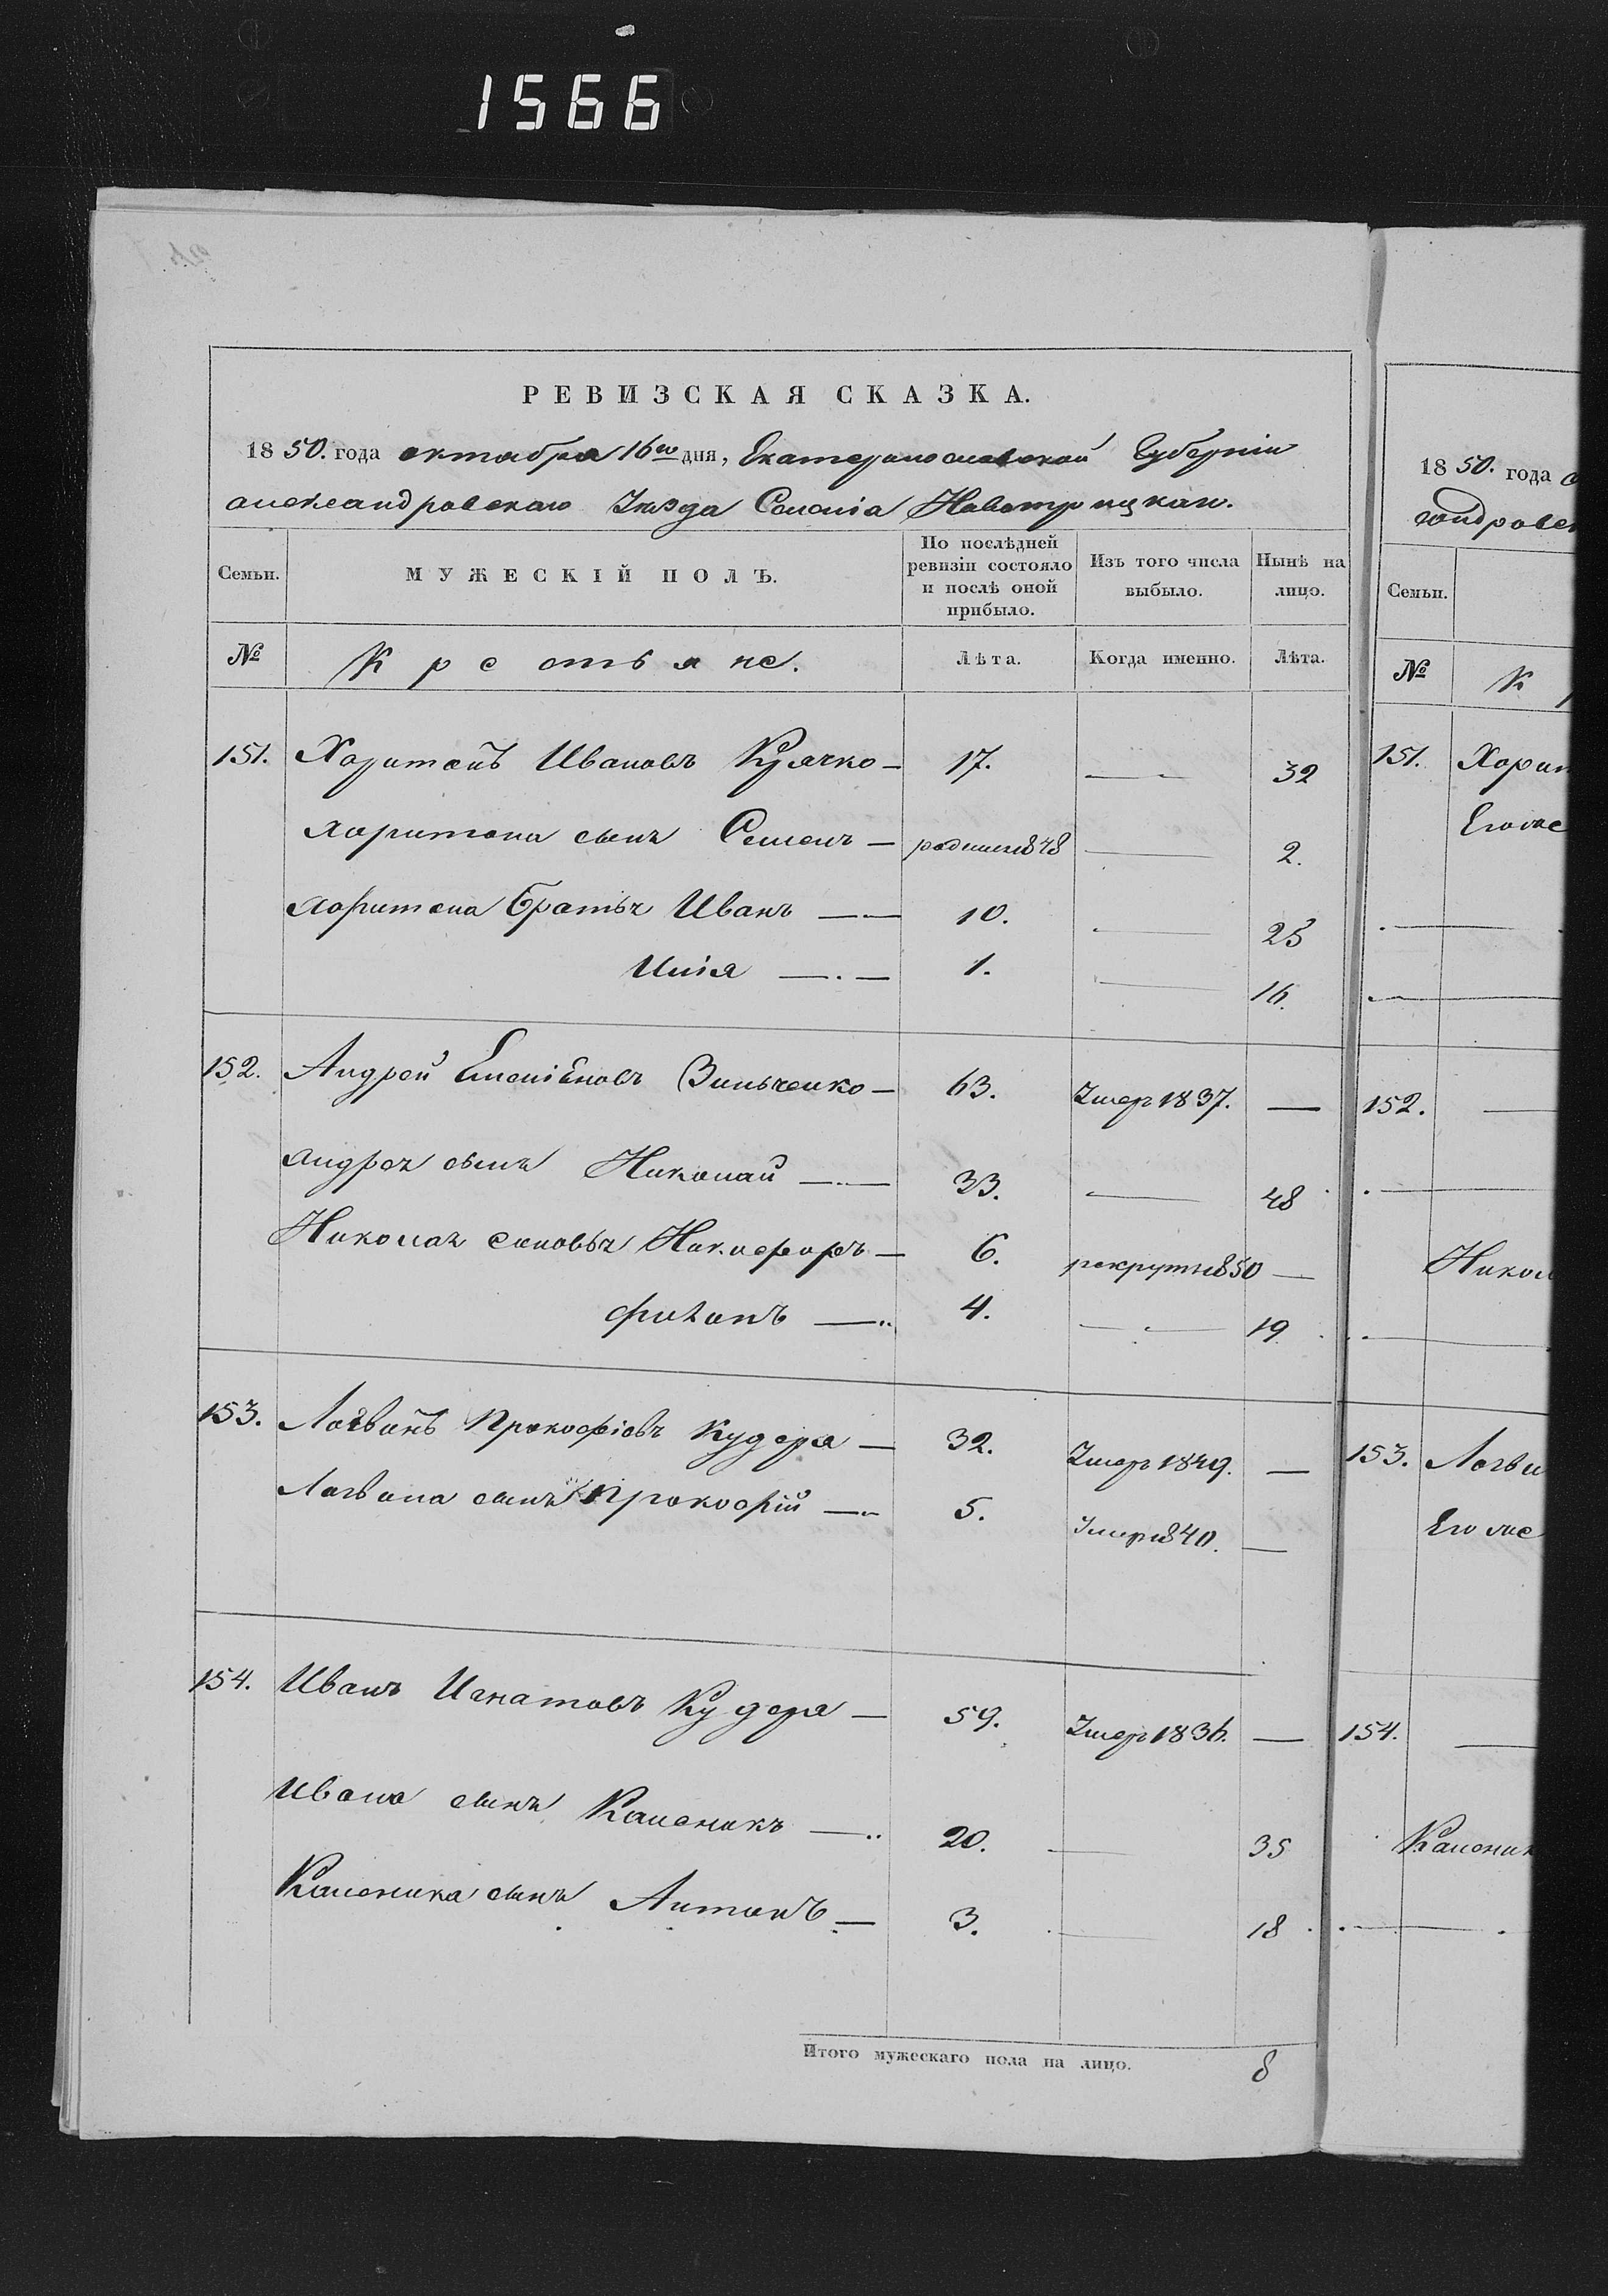 1566
РЕВИЗСКАЯ СКАЗКА.
1850. года октября 16го дня, Екатеринославской Губерніи
Александровскаго Уѣзда Селенія Новотроицкаго.
Семьи.
МУЖЕСКІЙ ПОЛЪ.
По послѣдней ревизіи состояло и послѣ оной прибыло.
Изъ того числа выбыло.
Нынѣ на лицо.
№
Крестьяне.
Лѣта.
Когда именно.
Лѣта.
151. Харитонъ Ивановъ Кулчко — 17. — 32
Харитона сынъ Семенъ — родился 1848 — 2.
Харитона братья Иванъ — 10. — 25
Илія — 1. — 16.
152. Андрей Зинченко — 63. Умеръ 1837. —
Андрея сынъ Николай — 33. — 48
Николая сыновья Никифоръ — 6. рекрутъ 1850 —
Филипъ — 4. — 19.
153. Логвинъ Прокофіевъ Кудеря — 32. Умеръ 1849. —
Логвина сынъ Прокофій — 5. Умеръ 1840. —
154. Иванъ Игнатовъ Кудеря — 59. Умеръ 1836. —
Ивана сынъ Каленикъ — 20. — 35
Каленика сынъ Антонъ — 3. — 18
Итого мужескаго пола на лицо. 8
1850. года
Семьи.
№
К
151.
Его же
152.
153.
Его же
154.